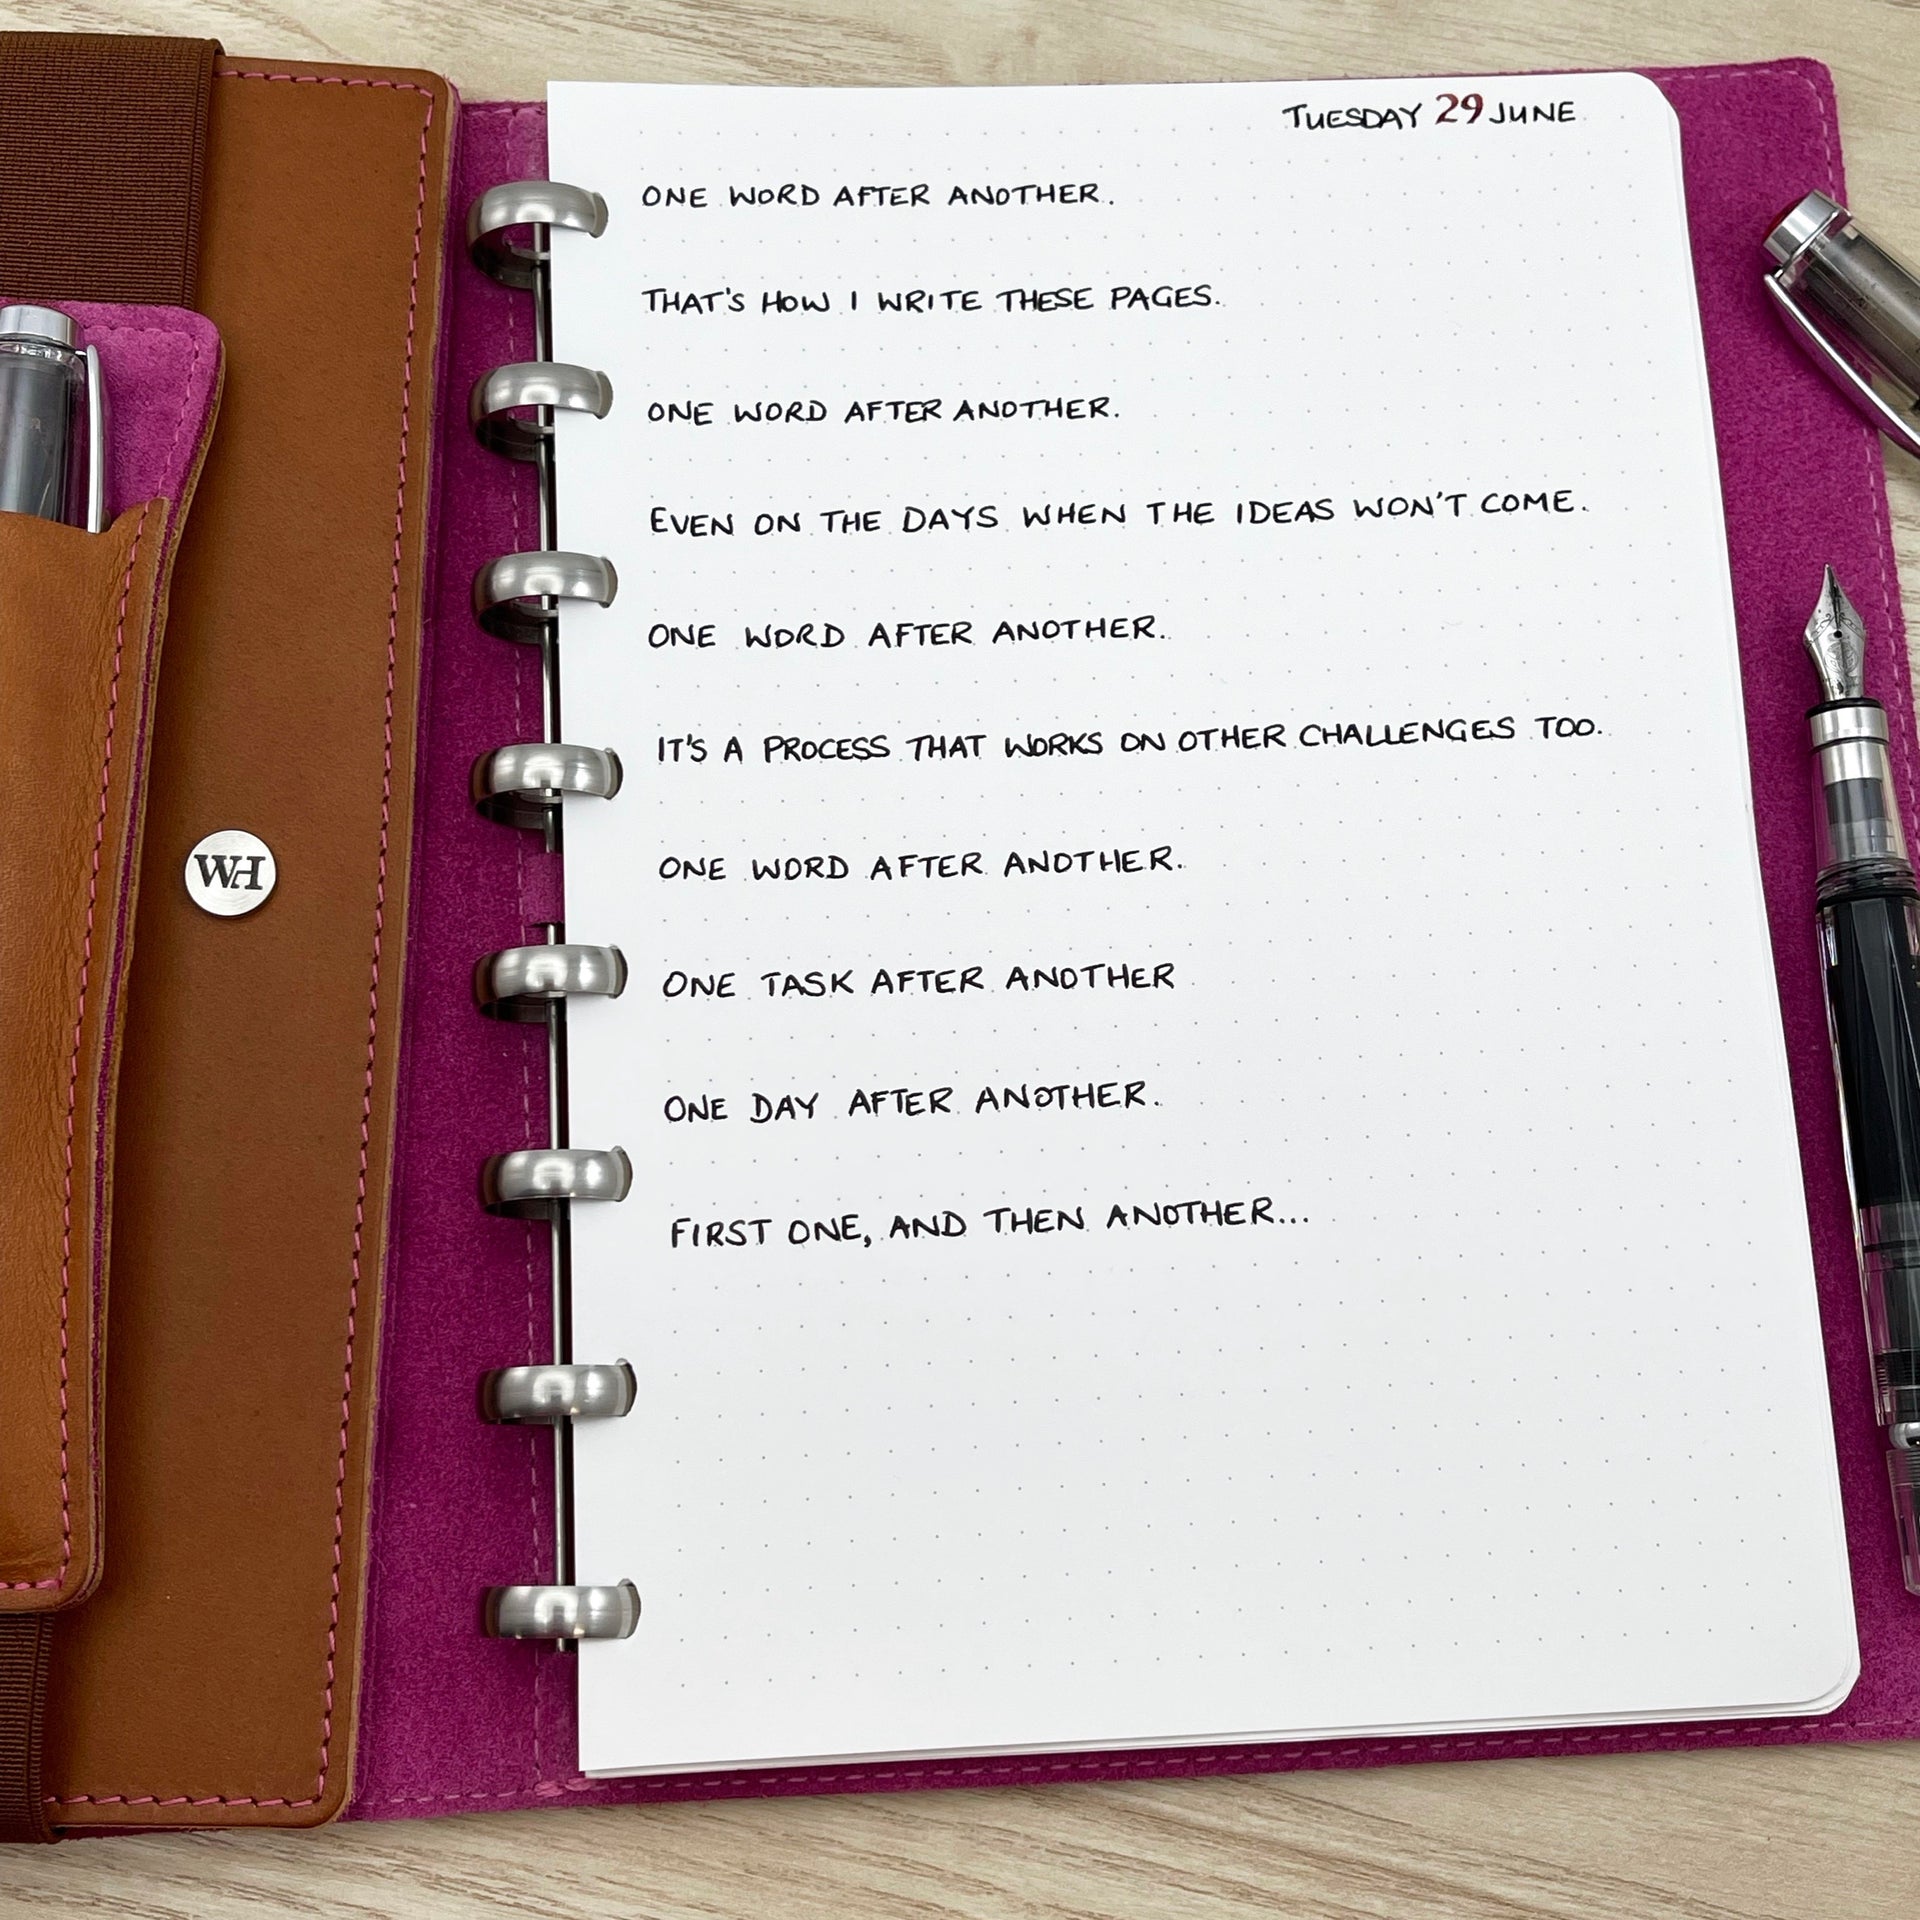 TUESDAY 29 JUNE
ONE WORD AFTER ANOTHER.
THAT'S HOW I WRITE THESE PAGES.
ONE WORD AFTER ANOTHER.
EVEN ON THE DAYS WHEN THE IDEAS WON'T COME.
ONE WORD AFTER ANOTHER.
IT'S A PROCESS THAT WORKS ON OTHER CHALLENGES TOO.
ONE WORD AFTER ANOTHER.
ONE TASK AFTER ANOTHER
ONE DAY AFTER ANOTHER.
FIRST ONE, AND THEN ANOTHER...
WH